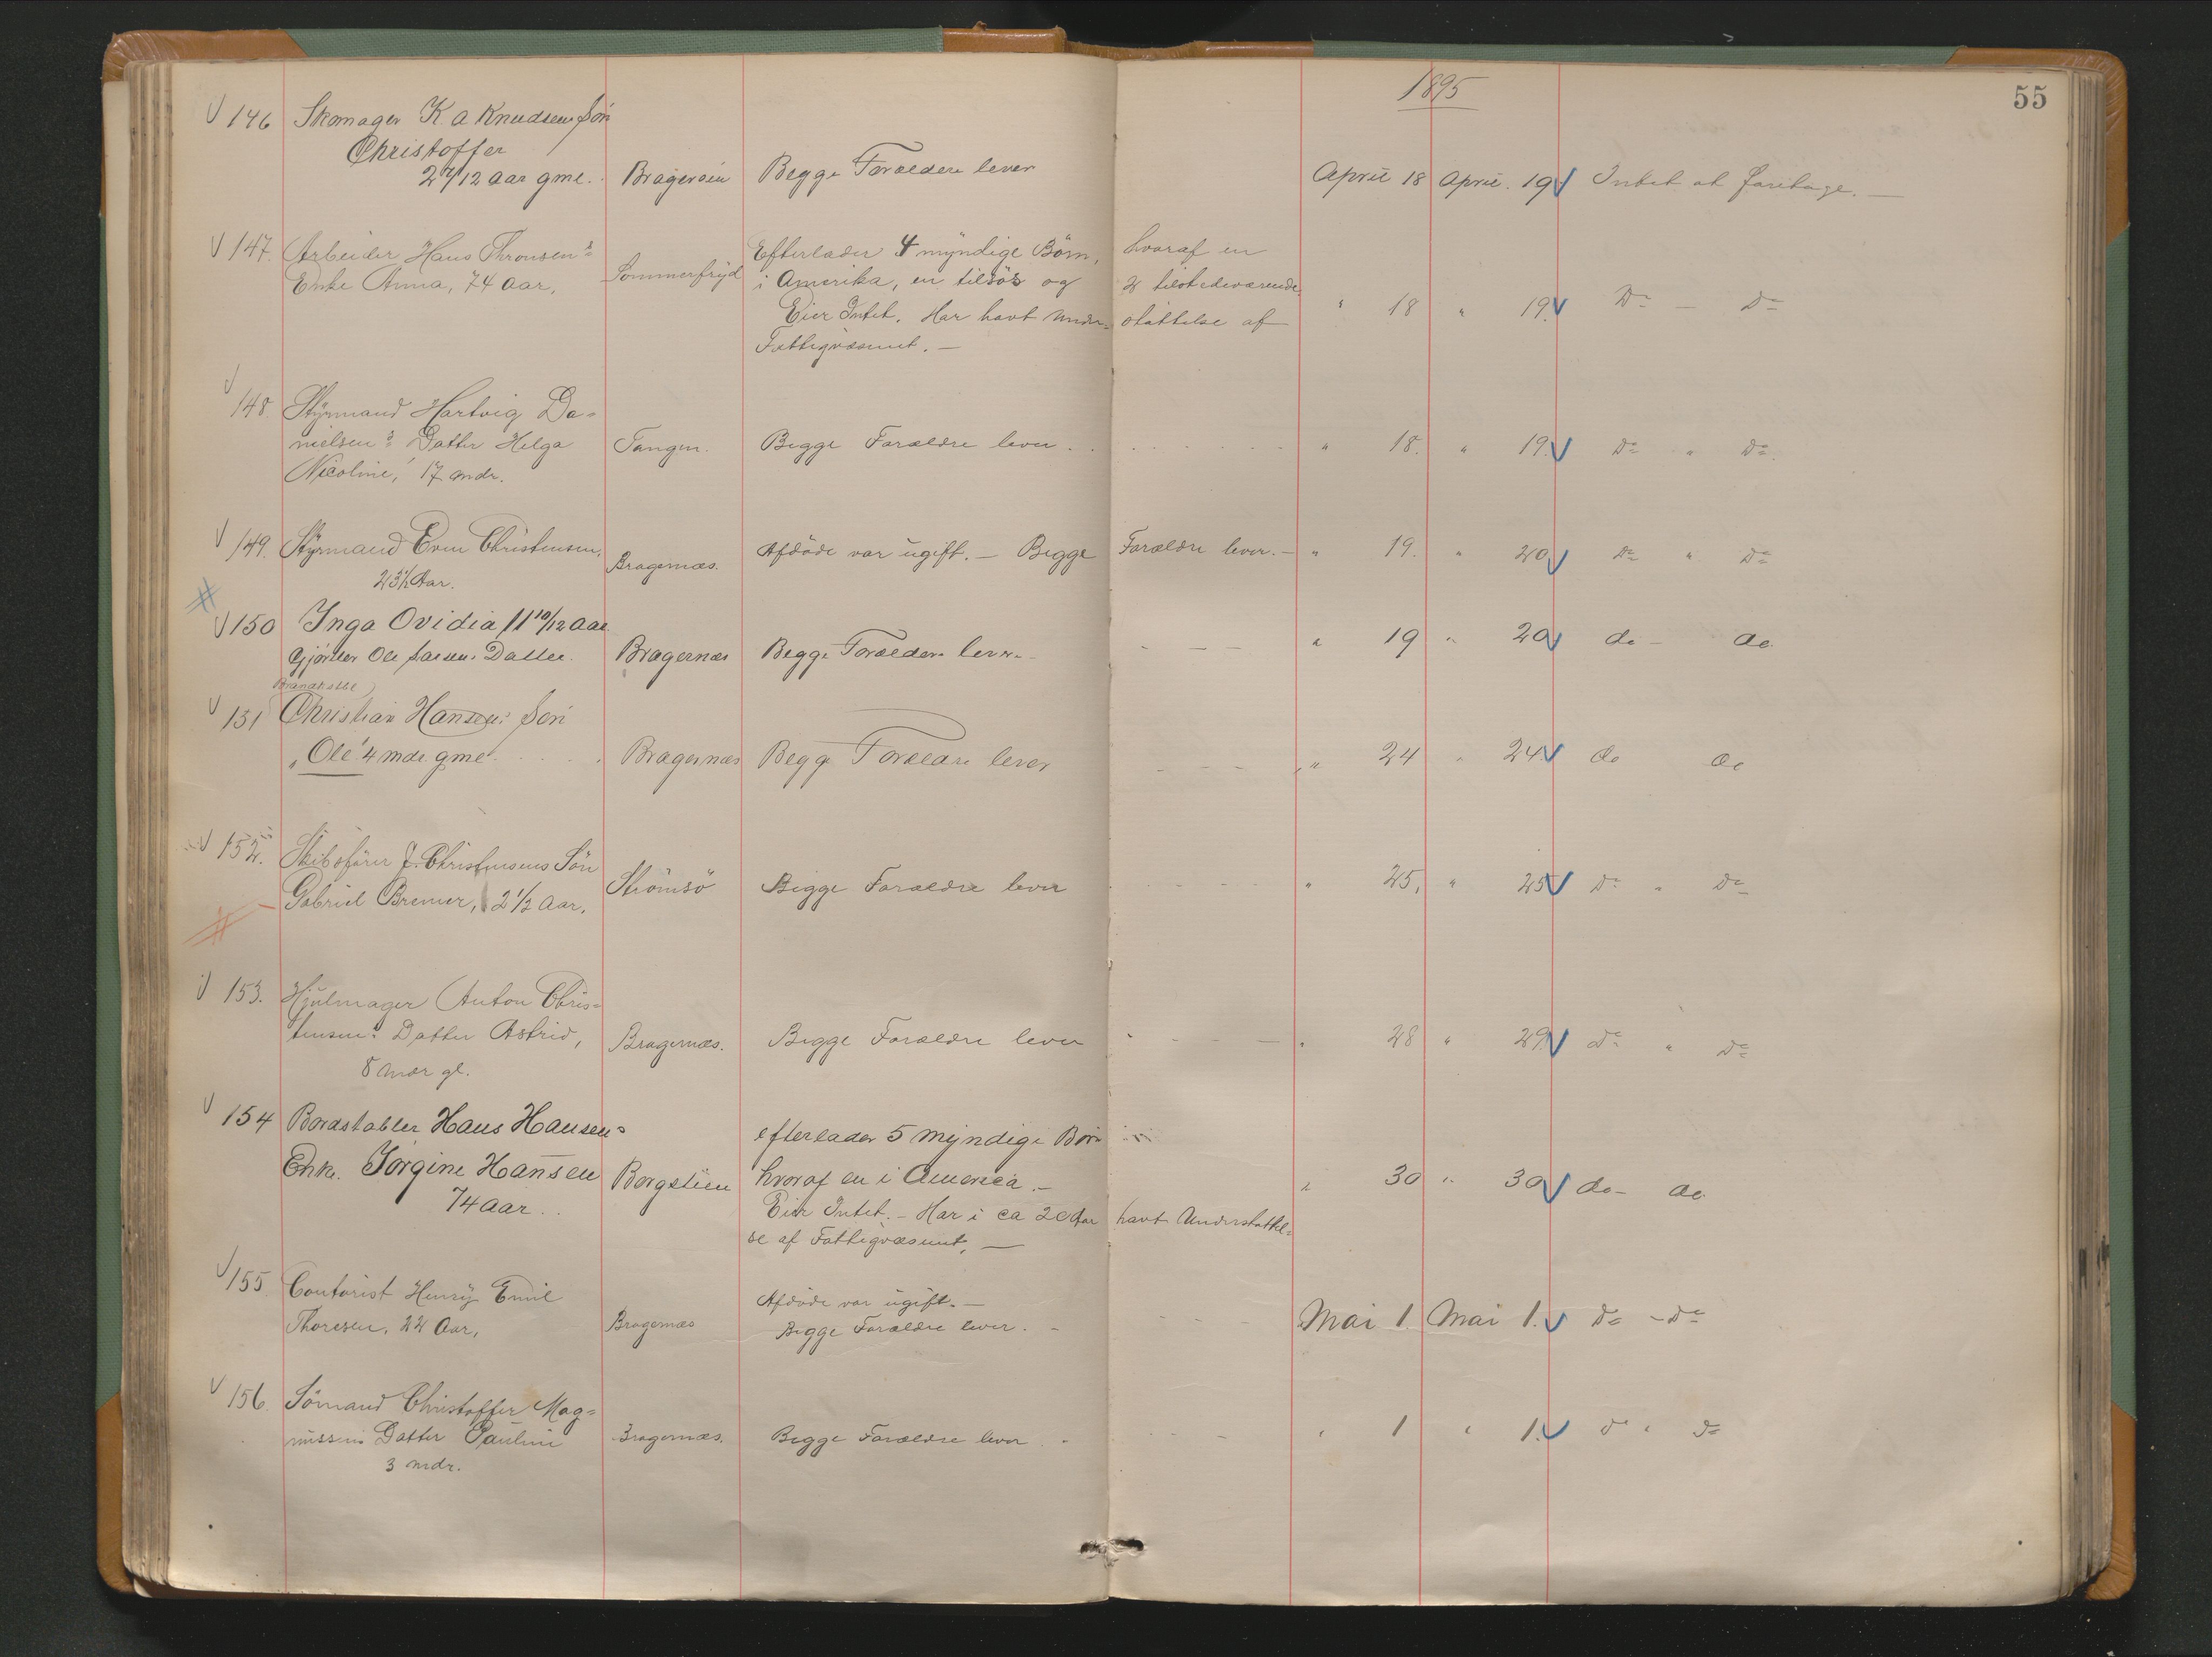 1895
55
146 Skomager K. a Knudsens Sön
Christoffer
2 7/12 aar gml. Bragerøen Begge Forældre lever April 18 April. 19 Intet at foretage. —
147. Arbeider Hans Thronsens Efterlader 4 myndige Börn, hvoraf en
Enke Anna, 74 Aar, Sommerfryd i Amerika, en tilsös og 2 tilstedeværende.
Eier Intet. Har havt Under- støttelse af " 18 " 19. Do — Do
Fattigvæsenet. —
148. Styrmand Hartvig Da-
nielsens Datter Helga Tangen. Begge Forældre lever . . " 18. " 19. Do " Do.
Nicoline, 17 mdr.
149. Styrmand Even Christensen, Bragernæs. Afdöde var ugift. — Begge Forældre lever. — " 19. " 20. Do " Do
23 1/2 Aar.
150 Inga Ovidia 11 10/12 aar
Gjörtler Ole Larsens Datter. Bragernæs Begge Forældre lever — — — " 19 " 20 do — do.
151 Christian Hansens Sön
"Ole" 4 mdr. gml. Bragernæs Begge Forældre lever — — — " 24 " 24 do do
152. Skibsförer J. Christensens Sön
Gabriel Bremer, 2 1/2 Aar. Strömsö Begge Forældre lever " 25. " 25 Do " Do
153. Hjulmager Anton Chris-
tensens Datter Astrid, Bragernæs. Begge Forældre lever " 28 " 29. Do " Do
8 Mdr gl.
154 Bordstabler Hans Hansen- efterlader 5 myndige Börn
Enke. Jörgine Hansen Borgstien hvoraf en i America. — " 30 " 30 do — do.
74 aar. Eier Intet. — Har i ca 20 Aar havt Understøttel-
se af Fattigvæsenet, —
155. Contorist Henry Emil Afdöde var ugift. —
Thoresen, 22 Aar, Bragernæs Begge Forældre lever. — Mai 1. Mai 1. Do — Do
156. Sömand Christoffer Mag-
nussens Datter Pauline Bragernæs. Begge Forældre lever . " 1 " 1. Do " Do
3 mdr.